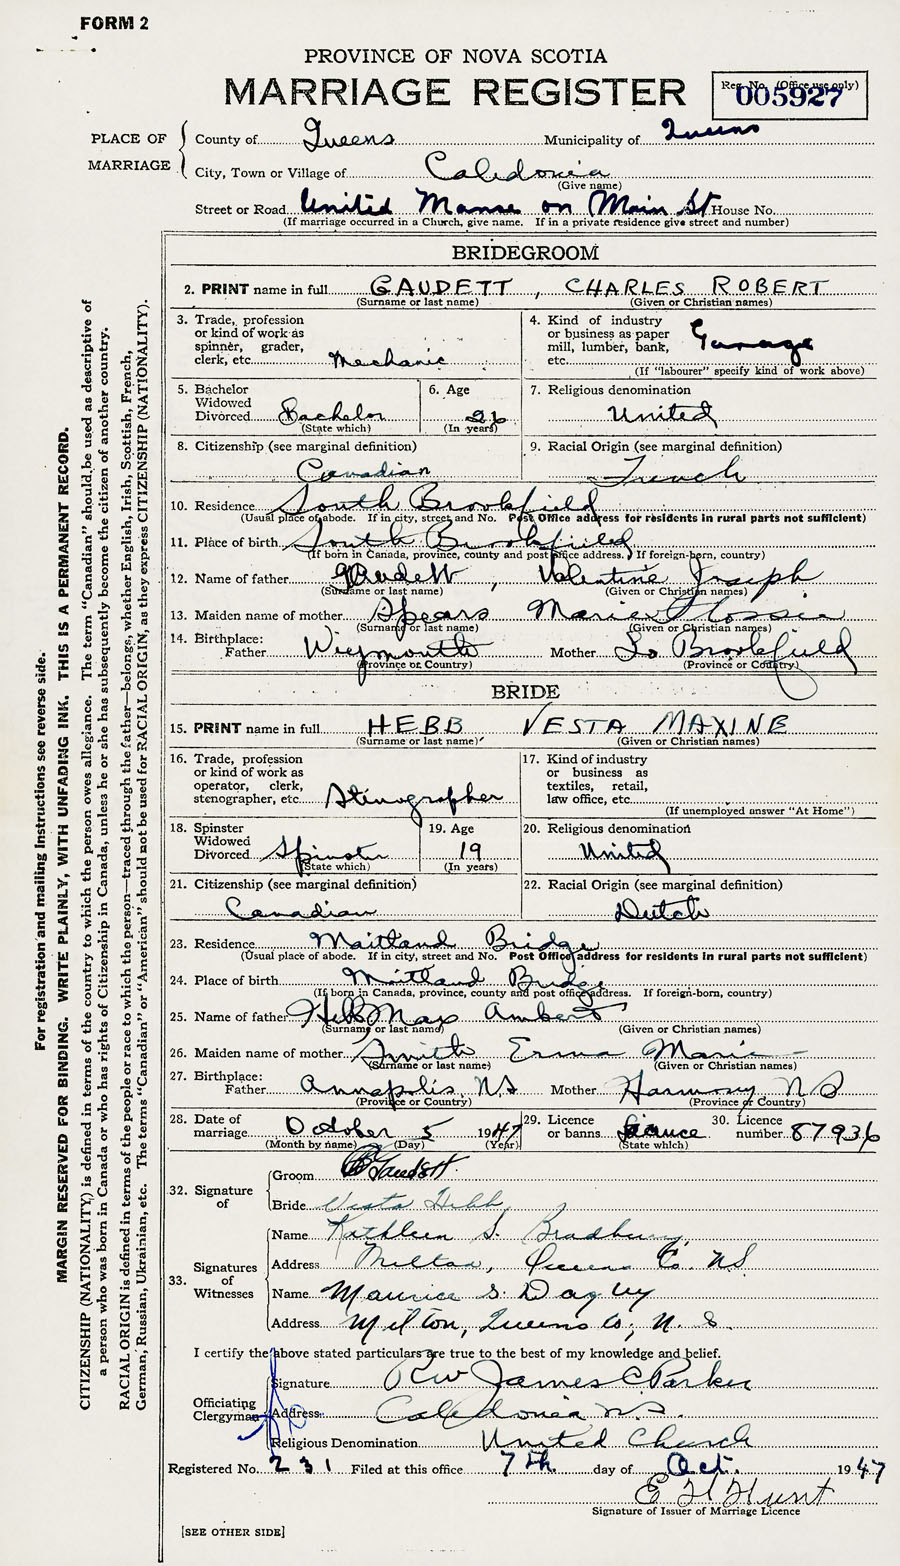 FORM 2
PROVINCE OF NOVA SCOTIA
MARRIAGE REGISTER
Reg. No. (Office use only)
005927
PLACE OF MARRIAGE
County of Queens Municipality of Queens
City, Town or Village of Caledonia
(Give name)
Street or Road United Manse on Main St House No.
(If marriage occurred in a Church, give name. If in a private residence give street and number)
BRIDEGROOM
2. PRINT name in full GAUDETT, CHARLES ROBERT
(Surname or last name) (Given or Christian names)
3. Trade, profession
or kind of work as
spinner, grader,
clerk, etc. Mechanic
4. Kind of industry
or business as paper
mill, lumber, bank,
etc. Garage
(If "labourer" specify kind of work above)
5. Bachelor
Widowed
Divorced Bachelor
(State which)
6. Age
26
(In years)
7. Religious denomination
United
8. Citizenship (see marginal definition)
Canadian
9. Racial Origin (see marginal definition)
French
10. Residence South Brookfield
(Usual place of abode. If in city, street and No. Post Office address for residents in rural parts not sufficient)
11. Place of birth South Brookfield
(If born in Canada, province, county and post office address. If foreign-born, country)
12. Name of father Gaudett, Valentine Joseph
(Surname or last name) (Given or Christian names)
13. Maiden name of mother Spears Marie Flossie
(Surname or last name) (Given or Christian names)
14. Birthplace:
Father Weymouth Mother So Brookfield
(Province or Country) (Province or Country)
BRIDE
15. PRINT name in full HEBB VESTA MAXINE
(Surname or last name) (Given or Christian names)
16. Trade, profession
or kind of work as
operator, clerk,
stenographer, etc. Stenographer
17. Kind of industry
or business as
textiles, retail,
law office, etc.
(If unemployed answer "At Home")
18. Spinster
Widowed
Divorced Spinster
(State which)
19. Age
19
(In years)
20. Religious denomination
United
21. Citizenship (see marginal definition)
Canadian
22. Racial Origin (see marginal definition)
Dutch
23. Residence Maitland Bridge
(Usual place of abode. If in city, street and No. Post Office address for residents in rural parts not sufficient)
24. Place of birth Maitland Bridge
(If born in Canada, province, county and post office address. If foreign-born, country)
25. Name of father Hebb Max Ambert
(Surname or last name) (Given or Christian names)
26. Maiden name of mother Smith Erma Marie
(Surname or last name) (Given or Christian names)
27. Birthplace:
Father Annapolis, NS Mother Harmony NS
(Province or Country) (Province or Country)
28. Date of marriage October 5 1947
(Month by name) (Day) (Year)
29. Licence or banns Licence
(State which)
30. Licence number 87936
32. Signature of
Groom Gaudett
Bride Vesta Hebb
33. Signatures of Witnesses
Name Kathleen S. Bradbury
Address Milton, Queens Co. NS
Name Maurice S. Dagley
Address Milton, Queens Co, N. S.
I certify the above stated particulars are true to the best of my knowledge and belief.
Officiating Clergyman
Signature Rev James C Parker
Address Caledonia N.S.
Religious Denomination United Church
Registered No. 231 Filed at this office 7th day of Oct. 1947
E H Hunt
Signature of Issuer of Marriage Licence
[SEE OTHER SIDE]
For registration and mailing instructions see reverse side.
MARGIN RESERVED FOR BINDING. WRITE PLAINLY, WITH UNFADING INK. THIS IS A PERMANENT RECORD.
CITIZENSHIP (NATIONALITY) is defined in terms of the country to which the person owes allegiance. The term "Canadian" should be used as descriptive of
a person who was born in Canada or who has rights of Citizenship in Canada, unless he or she has subsequently become the citizen of another country.
RACIAL ORIGIN is defined in terms of the people or race to which the person—traced through the father—belongs, whether English, Irish, Scottish, French,
German, Russian, Ukrainian, etc. The terms "Canadian" or "American" should not be used for RACIAL ORIGIN, as they express CITIZENSHIP (NATIONALITY).